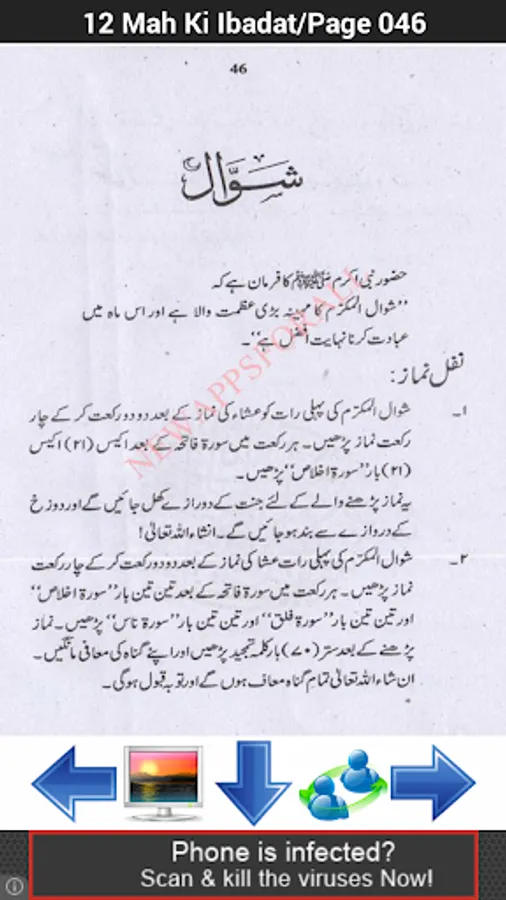 12 Mah Ki Ibadat/Page 046
46
شوّال
حضور نبی اکرم ﷺ کا فرمان ہے کہ
”شوال المکرّم کا مہینہ بڑی عظمت والا ہے اور اس ماہ میں
عبادت کرنا نہایت افضل ہے“۔
نفل نماز:
۱۔ شوال المکرّم کی پہلی رات کو عشاء کی نماز کے بعد دو دو رکعت کر کے چار
رکعت نماز پڑھیں۔ ہر رکعت میں سورۃ فاتحہ کے بعد اکیس (۲۱) اکیس
(۲۱) بار ”سورۃ اخلاص“ پڑھیں۔
یہ نماز پڑھنے والے کے لئے جنت کے دورازے کھل جائیں گے اور دوزخ
کے دروازے سے بند ہو جائیں گے۔ انشاء اللہ تعالیٰ!
۲۔ شوال المکرّم کی پہلی رات عشا کی نماز کے بعد دو دو رکعت کر کے چار رکعت
نماز پڑھیں۔ ہر رکعت میں سورۃ فاتحہ کے بعد تین تین بار ”سورۃ اخلاص“
اور تین تین بار ”سورۃ فلق“ اور تین تین بار ”سورۃ ناس“ پڑھیں۔ نماز
پڑھنے کے بعد ستر (۷۰) بار کلمہ تمجید پڑھیں اور اپنے گناہ کی معافی مانگیں۔
ان شاء اللہ تعالیٰ تمام گناہ معاف ہوں گے اور توبہ قبول ہوگی۔
NEWAPPSFORALL
Phone is infected?
Scan & kill the viruses Now!